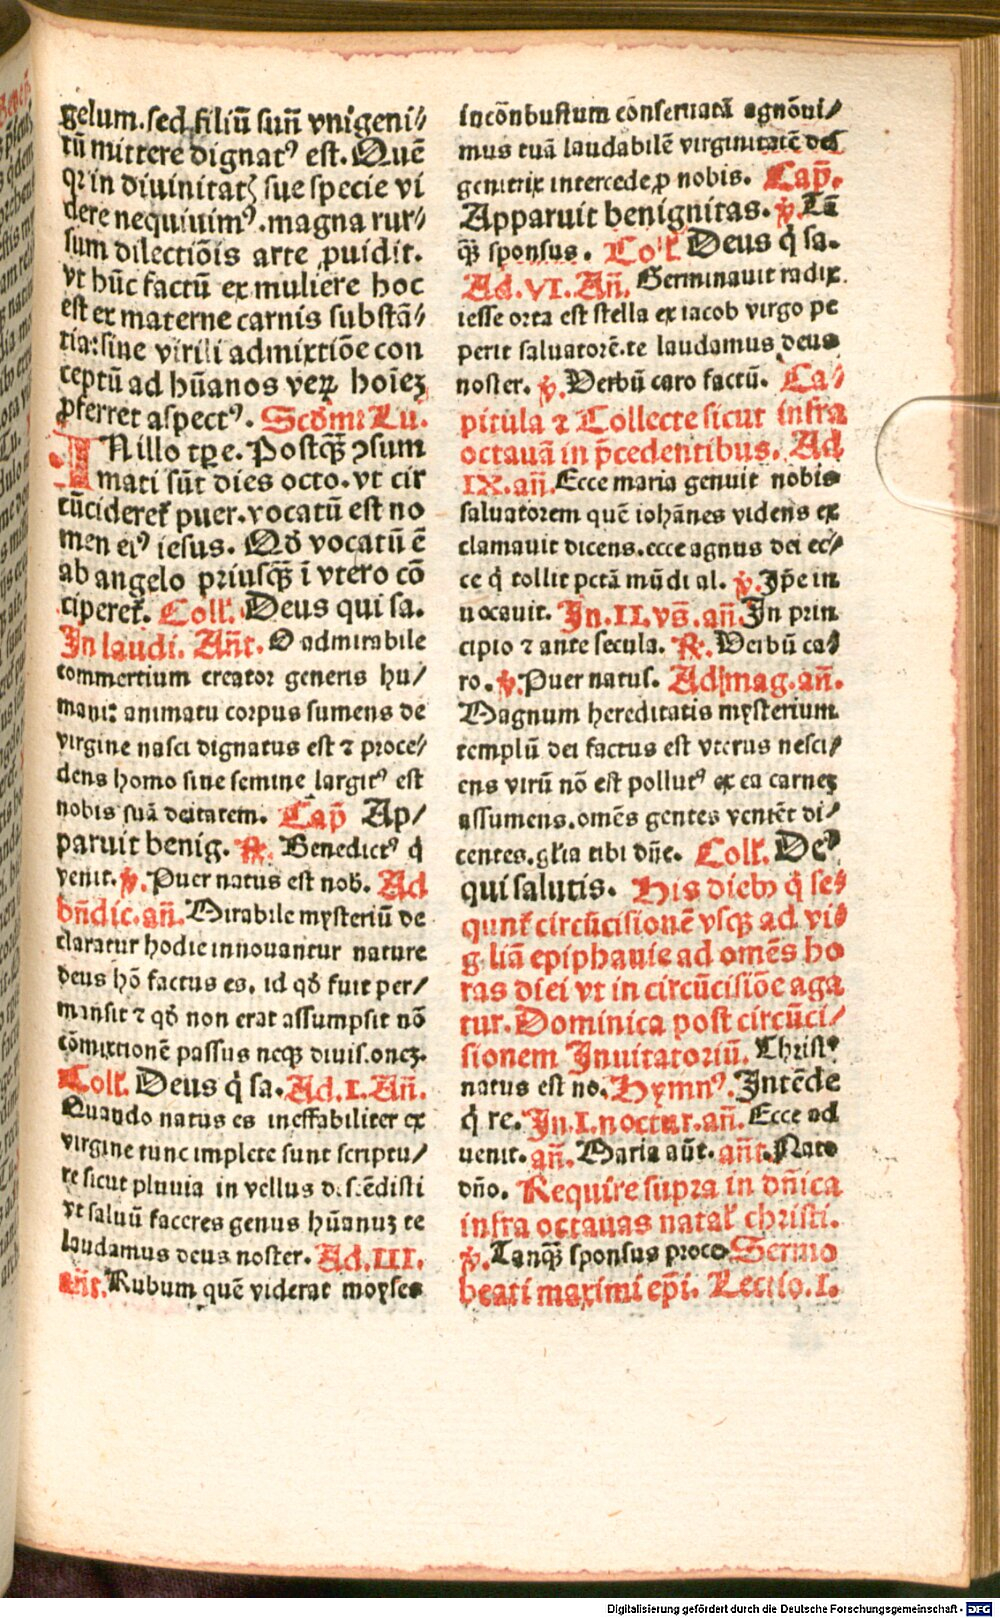 gelum.sed filiū suū vnigeni⸗
tū mittere dignatꝰ est. Quē
qꝛ in diuinitatꝫ sue specie vi
dere nequiuimꝰ.magna rur⸗
sum dilectiōis arte ꝓuidit.
vt hūc factū ex muliere hoc
est ex materne carnis substā⸗
tia:sine virili admixtiōe con
ceptū ad hūanos veꝝ hoīeꝫ
ꝓferret aspectꝰ. Scd̄m Lu.
IN illo tꝑe. Postqꝫ̄ ꝯsum
mati sūt dies octo. vt cir
cūcideret̄ puer. vocatū est no
men eiꝰ iesus. Qd̄ vocatū ē
ab angelo priusqꝫ̄ ī vtero cō
ciperet̄. Coll̄. Deus qui sa.
In laudi. Añt. O admirabile
commertium creator generis hu⸗
mani: animatu corpus sumens de
virgine nasci dignatus est ⁊ proce⸗
dens homo sine semine largitꝰ est
nobis suā deitatem. Cap̄ Ap⸗
paruit benig. ℟. Benedictꝰ q̇
venit. ℣. Puer natus est nob. Ad
bn̄dic. añ. Mirabile mysteriū de
claratur hodie innouantur nature
deus hō factus es. id qd̄ fuit per⸗
mansit ⁊ qd̄ non erat assumpsit nō
cōmixtionē passus neqꝫ diuisionēꝫ.
Coll̄. Deus q̇ sa. Ad. I. Añ.
Quando natus es ineffabiliter ex
virgine tunc implete sunt scriptu⸗
re sicut pluuia in vellus descēdisti
vt saluū faceres genus hūanuꝫ te
laudamus deus noster. Ad. III.
añt. Rubum quē viderat moyses
incōnbustum cōnseruatā agnōui⸗
mus tuā laudabilē virginitatē dei
genitrix intercede ꝓ nobis. Cap̄.
Apparuit benignitas. ℣. Tā
qꝫ̄ sponsus. Coll̄ Deus q̇ sa.
Ad. VI. Añ. Germinauit radix
iesse orta est stella ex iacob virgo pe
perit saluatorē.te laudamus deus
noster. ℣. Verbū caro factū. Ca⸗
pitula ⁊ Collecte sicut infra
octauā in p̄cedentibus. Ad
IX. añ. Ecce maria genuit nobis
saluatorem quē iohānes videns ex
clamauit dicens.ecce agnus dei ec⸗
ce q̇ tollit pctā mūdi al. ℣. Ip̄e in
uocauit. In. II. vs̄. añ. In prin
cipio ⁊ ante secula. ℟. Verbū ca⸗
ro. ℣. Puer natus. Ad mag. añ.
Magnum hereditatis mysterium
templū dei factus est vterus nesci⸗
ens virū nō est pollutꝰ ex ea carneꝫ
assumens.omēs gentes veniēt di⸗
centes.gl̄ia tibi dn̄e. Coll̄. Deꝰ
qui salutis. His diebꝰ q̇ se⸗
qunt̄ circūcisionē vsqꝫ ad vi⸗
giliā epiphauie ad omēs ho
ras diei vt in circūcisiōe aga
tur. Dominica post circūci⸗
sionem Inuitatoriū. Christꝰ
natus est no. Hymnꝰ. Intēde
q̇ re. In. I. noctur. añ. Ecce ad
uenit. añ. Maria aūt. añt. Nato
dn̄o. Require supra in dn̄ica
infra octauas natal̄ christi.
℣. Tanqꝫ̄ sponsus proce. Sermo
beati maximi ep̄i. Lectio. I.
Digitalisierung gefördert durch die Deutsche Forschungsgemeinschaft - DFG